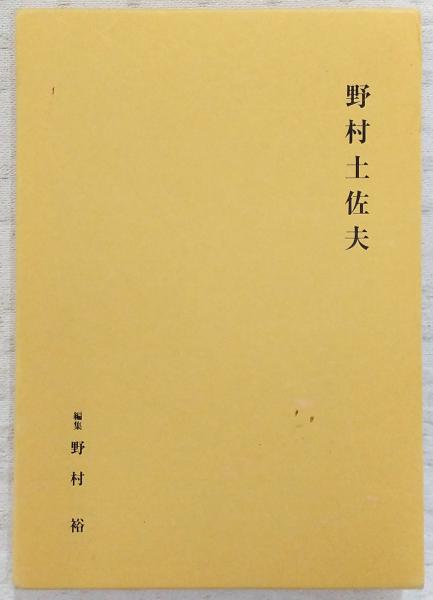 野村土佐夫
編集 野村 裕